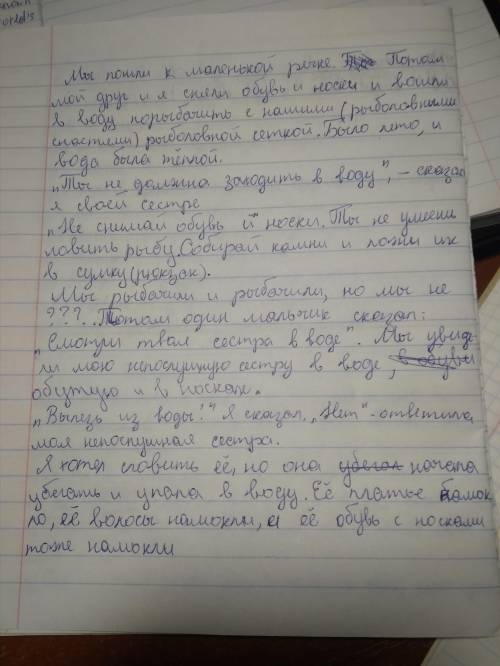 Мы пошли к маленькой речке. Потом
мой друг и я сняли обувь и носки и вошли
в воду порыбачить с нашими (рыболовными
снастями) рыболовной сеткой. Было лето, и
вода была тёплой.
„Ты не должна заходить в воду", – сказал
я своей сестре
„Не снимай обувь и носки. Ты не умееш
ловить рыбу. Собирай камни и ложи их
в сумку (рюкзак).
Мы рыбачили и рыбачили, но мы не
???. Потом один мальчик сказал:
„Смотри твоя сестра в воде". Мы увиде-
ли мою непослушную сестру в воде, в обуви
обутую и в носках.
„Вылезь из воды!" Я сказал. „Нет" - ответила
моя непослушная сестра.
Я хотел словить её, но она убегал начала
убегать и упала в воду. Её платье намок
ло, её волосы намокли, и её обувь с носками
тоже намокли